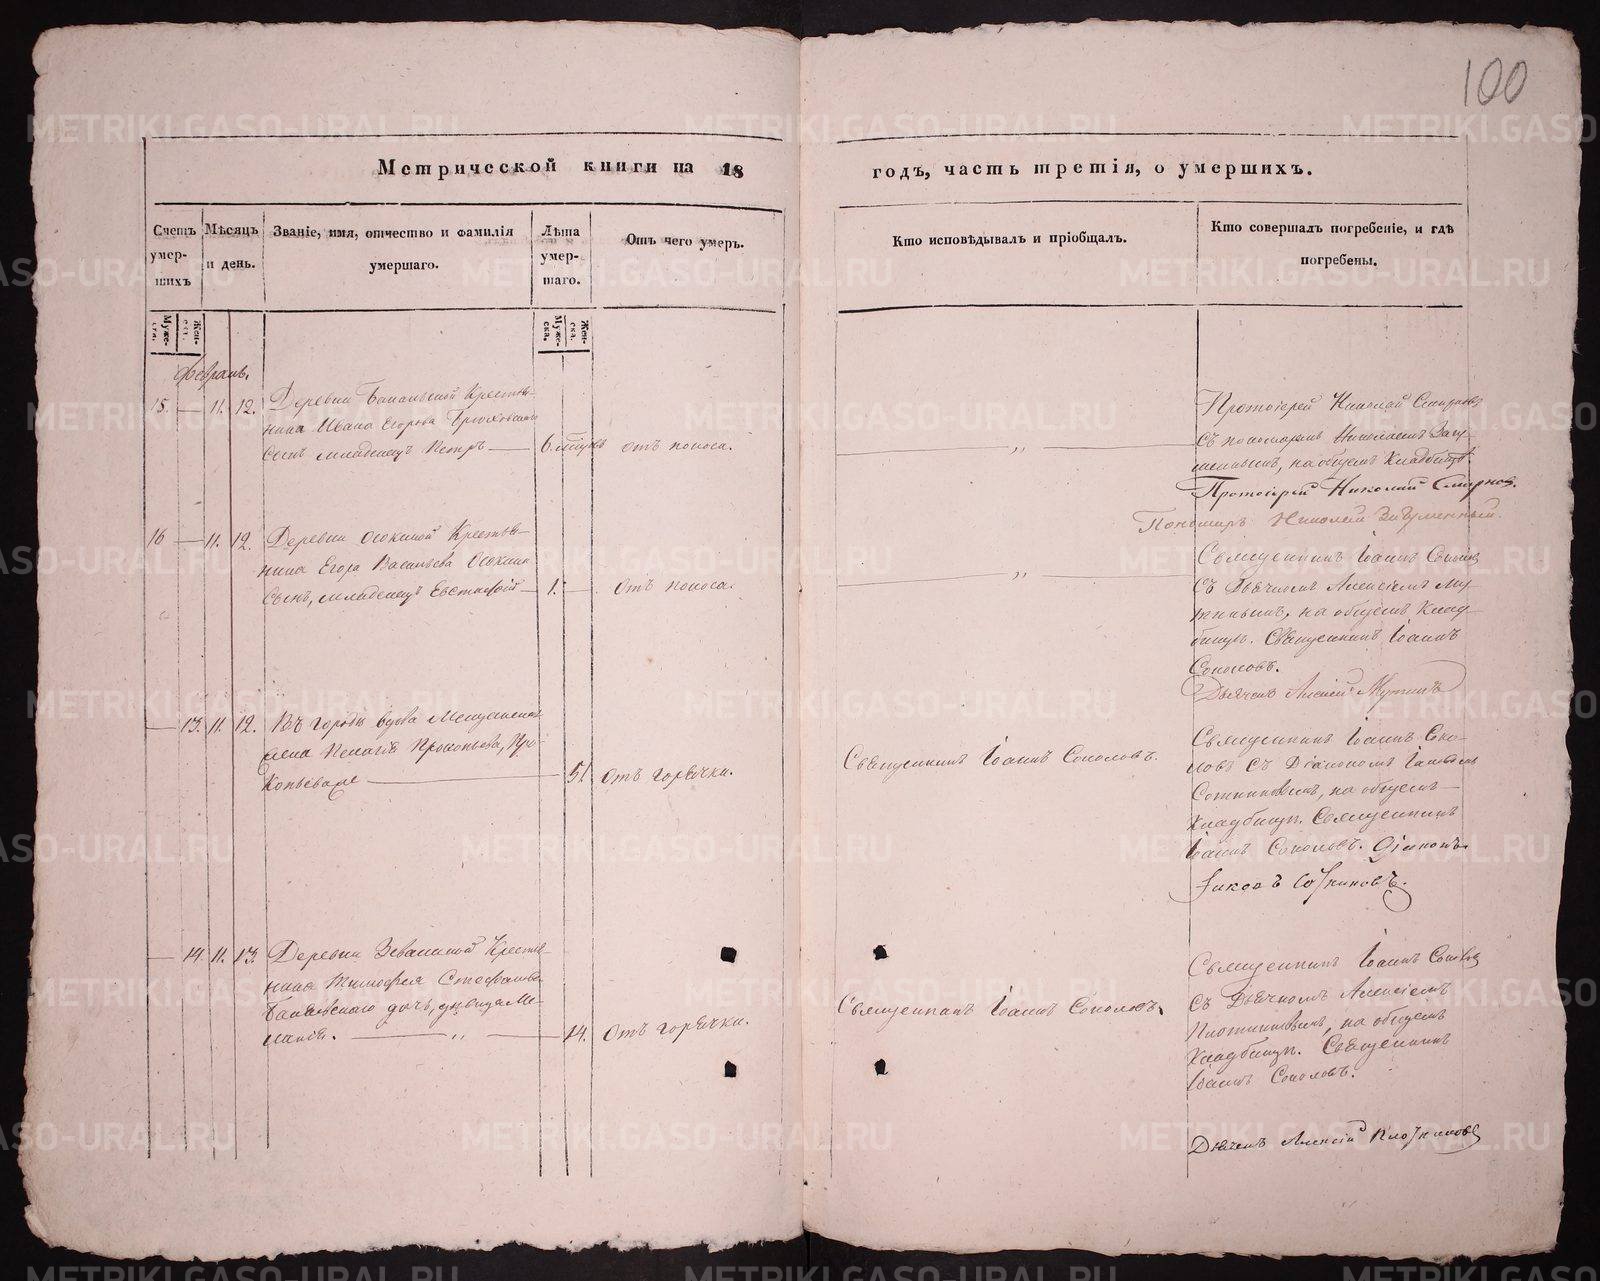 100
Метрической книги на 18
годъ, часть третія, о умершихъ.
Счетъ умер-шихъ
Мѣсяцъ и день.
Званіе, имя, отчество и фамилія умершаго.
Лѣта умер-шаго.
Отъ чего умеръ.
Кто исповѣдывалъ и пріобщалъ.
Кто совершалъ погребеніе, и гдѣ погребены.
Муже-ска.
Жен-ска.
Муже-ска.
Жен-ска.
Февраль.
15. — 11. 12.
Деревни Крестья-
нина Ивана Егорова
сынъ младенецъ Петръ —
6. отъ поноса.
— „ —
Протоіерей Николай Смирновъ
съ пономаремъ Николаемъ
на общемъ кладбищѣ.
Протоіерей Николай Смирновъ.
Пономарь Николай
16 — 11. 12.
Деревни Осокиной Крестья-
нина Егора Васильева Осокина
сынъ, младенецъ Евстафій —
1. — отъ поноса.
— „ —
Священникъ Іоаннъ Соколовъ
съ Дьячкомъ Алексіемъ
на общемъ клад-
бищѣ. Священникъ Іоаннъ
Соколовъ.
Дьячекъ Алексій
— 13. 11. 12.
Въ городѣ вдова
Пелагія Прокопьева, Про-
копьева —
51. отъ горячки.
Священникъ Іоаннъ Соколовъ.
Священникъ Іоаннъ Соко-
ловъ съ Діакономъ Іаковомъ
Сотниковымъ, на общемъ —
кладбищѣ. Священникъ
Іоаннъ Соколовъ. Діаконъ
Іаковъ Сотниковъ.
— 14. 11. 13.
Деревни Крестья-
нина Тимофея Стефанова
дочь, девица Ме-
ланія. — „ —
14. отъ горячки.
Священникъ Іоаннъ Соколовъ.
Священникъ Іоаннъ Соколовъ
съ Дьячкомъ Алексіемъ
Плотниковымъ, на общемъ
кладбищѣ. Священникъ
Іоаннъ Соколовъ.
Дьячекъ Алексій Плотниковъ
METRIKI.GASO-URAL.RU